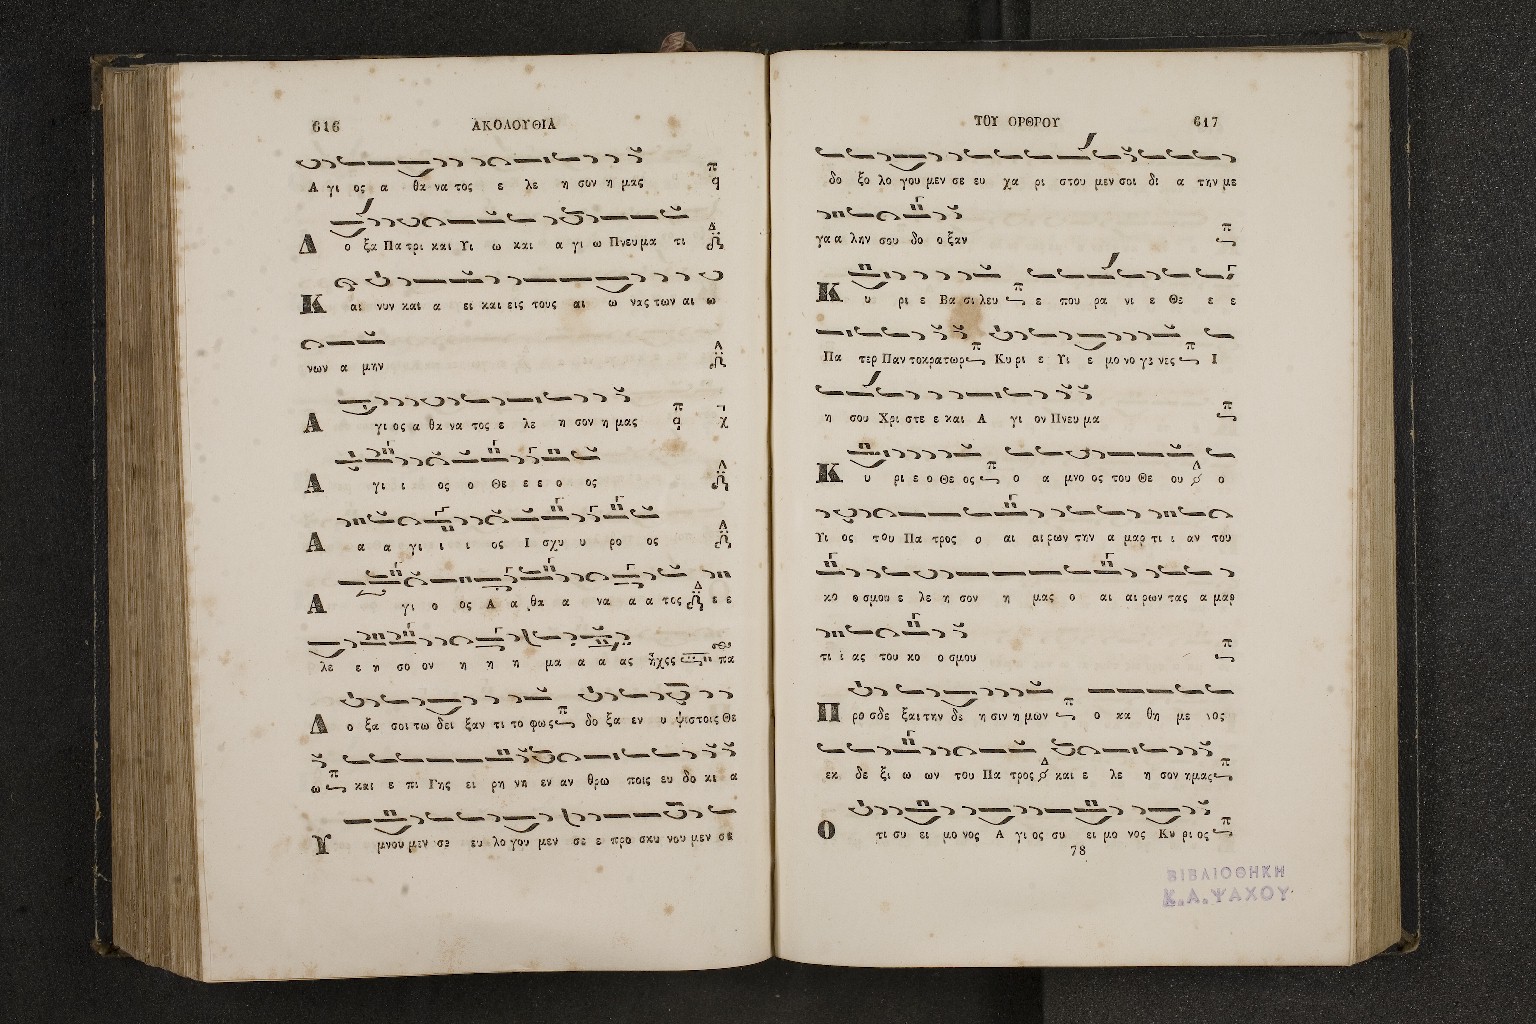 616 ΑΚΟΛΟΥΘΙΑ
Α γι ος α θα να τος ε λε η σον η μας
Δ ο ξα Πα τρι και Υι ω και α γι ω Πνευ μα τι
Κ αι νυν και α ει και εις τους αι ω νας των αι ω
νων α μην
Α γι ος α θα να τος ε λε η σον η μας
Α γι ι ος ο Θε ε ε ο ος
Α α α γι ι ι ος Ι σχυ υ ρο ος
Α γι ο ος Α α θα α να α α τος ε ε
λε ε η σο ον η η η μα α α ας ἦχος πα
Δ ο ξα σοι τω δει ξαν τι το φως δο ξα εν υ ψιστοις Θε
ω και ε πι Γης ει ρη νη εν αν θρω ποις ευ δο κι α
Υ μνου μεν σε ευ λο γου μεν σε ε προ σκυ νου μεν σε
ΤΟΥ ΟΡΘΡΟΥ 617
δο ξο λο γου μεν σε ευ χα ρι στου μεν σοι δι α την με
γα α λην σου δο ο ξαν
Κ υ ρι ε Βα σι λευ ε που ρα νι ε Θε ε ε
Πα τερ Παν τοκρατωρ Κυ ρι ε Υι ε μο νο γε νες Ι
η σου Χρι στε ε και Α γι ον Πνευ μα
Κ υ ρι ε ο Θε ος ο α μνο ος του Θε ου ο
Υι ος του Πα τρος ο αι αι ρων την α μαρ τι ι αν του
κο ο σμου ε λε η σον η μας ο αι αι ρων τας α μαρ
τι ι ας του κο ο σμου
Π ρο σδε ξαι την δε η σιν η μων ο κα θη με νος
εκ δε ξι ω ων του Πα τρος και ε λε η σον ημας
Ο τι συ ει μο νος Α γι ος συ ει μο νος Κυ ρι ος
78
ΒΙΒΛΙΟΘΗΚΗ
Κ.Α.ΨΑΧΟΥ